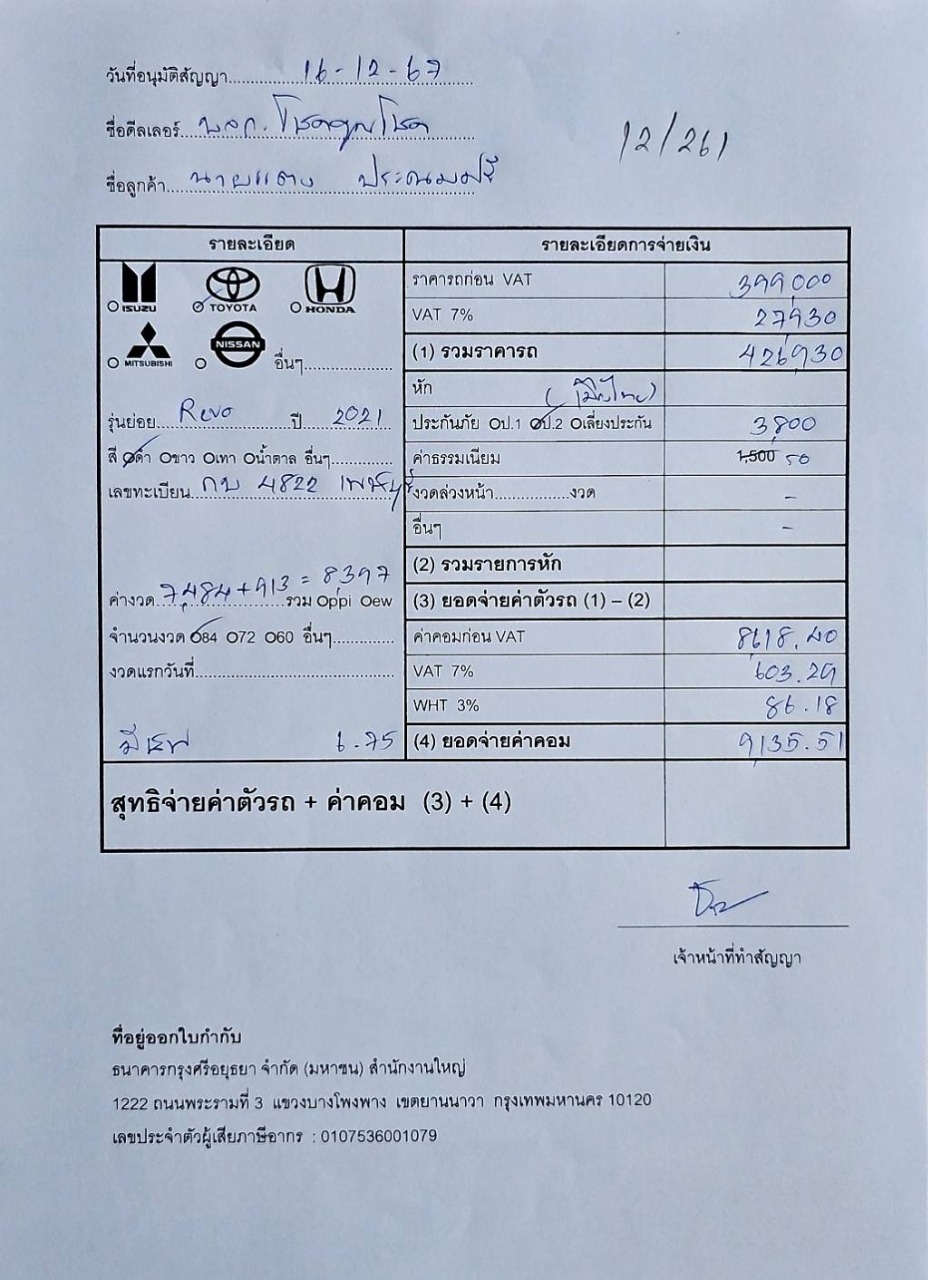 วันที่อนุมัติสัญญา............16-12-67
ชื่อดีลเลอร์ หจก. โชคคูณโชค
12/261
ชื่อลูกค้า....นายแตง
รายละเอียด
รายละเอียดการจ่ายเงิน
ISUZU TOYOTA HONDA
ราคารถก่อน VAT 399,000
VAT 7% 27,930
MITSUBISHI NISSAN อื่นๆ....................
(1) รวมราคารถ 426,930
หัก (เมืองไทย)
รุ่นย่อย....Revo ปี 2021
ประกันภัย Oป.1 Oป.2 Oเลี่ยงประกัน 3,800
สี Oดำ Oขาว Oเทา Oน้ำตาล อื่นๆ..............
ค่าธรรมเนียม 1,500 50
เลขทะเบียน 4822 เพชรบุรี
งวดล่วงหน้า.................งวด -
อื่นๆ -
(2) รวมรายการหัก
ค่างวด 7,484+913 = 8,397 รวม Oppi Oew
(3) ยอดจ่ายค่าตัวรถ (1) – (2)
จำนวนงวด O84 O72 O60 อื่นๆ..............
ค่าคอมก่อน VAT 8,618.40
งวดแรกวันที่.............................................
VAT 7% 603.29
WHT 3% 86.18
6.75
(4) ยอดจ่ายค่าคอม 9,135.51
สุทธิจ่ายค่าตัวรถ + ค่าคอม (3) + (4)
เจ้าหน้าที่ทำสัญญา
ที่อยู่ออกใบกำกับ
ธนาคารกรุงศรีอยุธยา จำกัด (มหาชน) สำนักงานใหญ่
1222 ถนนพระรามที่ 3 แขวงบางโพงพาง เขตยานนาวา กรุงเทพมหานคร 10120
เลขประจำตัวผู้เสียภาษีอากร : 0107536001079